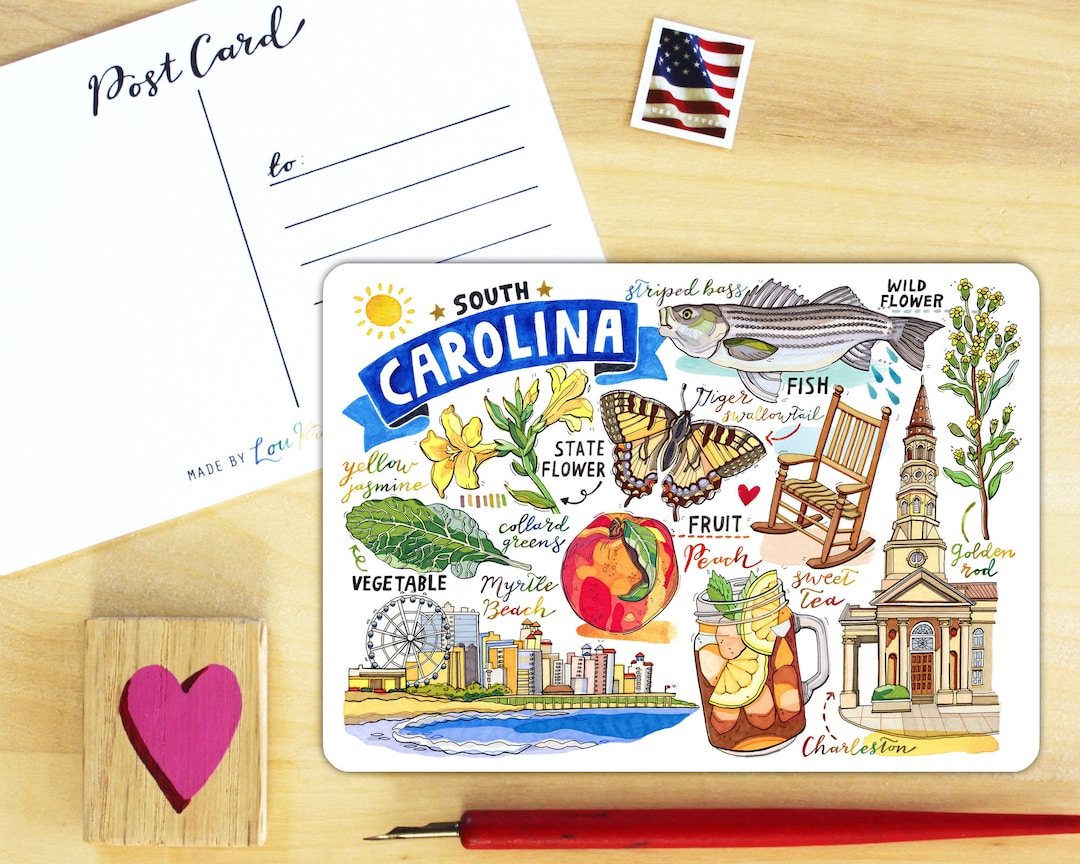 Post Card
to:
MADE BY Lou
SOUTH
CAROLINA
striped bass
WILD
FLOWER
FISH
Tiger
swallowtail
STATE
FLOWER
yellow
jasmine
collard
greens
FRUIT
Peach
VEGETABLE
Myrtle
Beach
sweet
Tea
golden
rod
Charleston